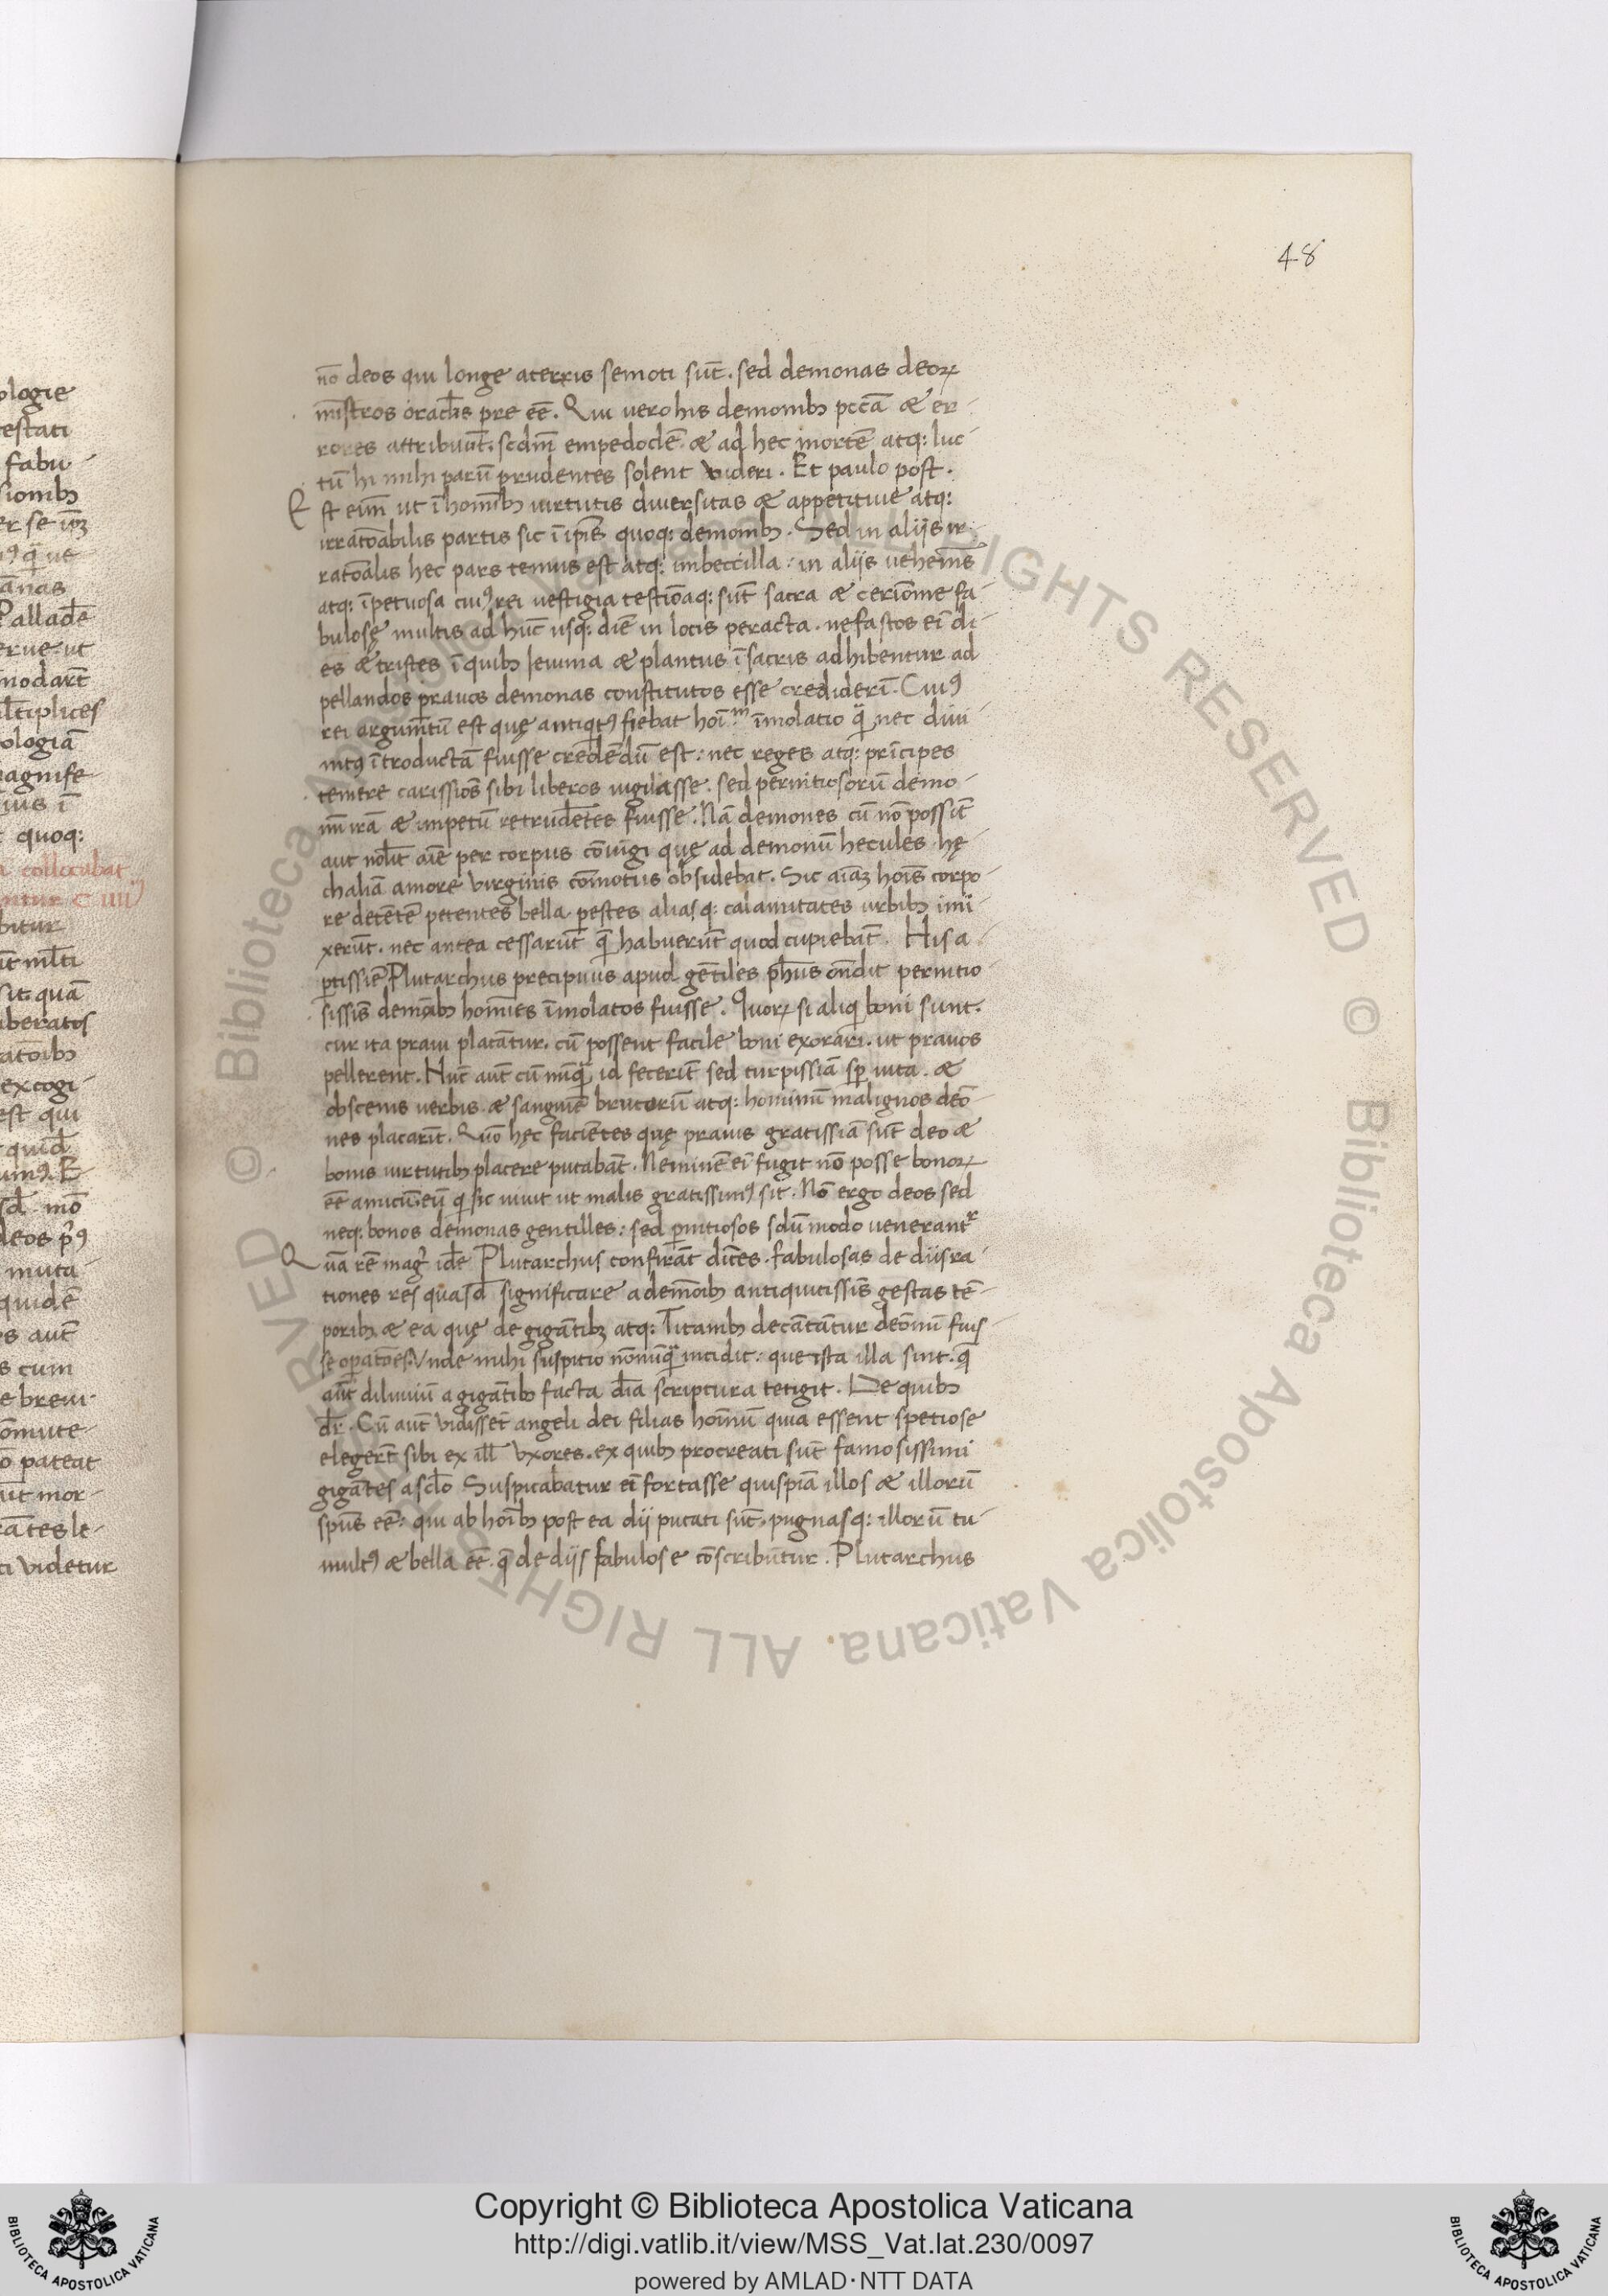 48
nō deos qui longe aterris semoti sūt. sed demonas deoꝝ
mīstros oraclis pre eē. Qui uero his demonibꝫ pccā & er-
rores attribuūt. scdm̄ empedoclē & ad hec mortē atq: luc-
tū hi mihi parū prudentes solent uideri. Et paulo post.
Est enim ut ī homībꝫ uirtutis diuersitas & appetitiue atq:
irratōabilis partis sic ī ipīs quoq: demonibꝫ. Sed in aliis ir-
ratōalis hec pars tenuis est atq: imbeccilla: in aliis uehemēs
atq: īpetuosa cuiꝰ rei uestigia testiōaq: sūt sacra & cerimōnie fa-
bulosę multis ad hūc usq: diē in locis peracta. nefastos eī di-
es & tristes ī quibꝫ Ieiunia & plantus ī sacris adhibentur ad
pellandos prauos demonas constitutos esse crediderī. Cuiꝰ
rei argumētū est quę antiqtꝰ fiebat hoīm īmolatio quā nec diui-
nitꝰ ītroductā fuisse credēdū est: nec reges atq: prīcipes
temere carissimos sibi liberos iugulasse. sed pernitiosorū demo-
nū irā & impetū retrudētes fuisse. Nā demones cū nō possīt
aut nolīt aīe per corpus cōiūgi quę ad demonū hecules hę-
chaliā amore uirginis cōmotus obsidebat. Sic aīaꝫ hoīs corpo-
re detētē petentes bella pestes aliasq: calamitates urbibꝫ īmi-
xerūt. nec antea cessarūt quā habuerūt quod cupiebāt. His a-
ptissīe Plutarchus precipuus apud gētiles ph̄us ōndit pernitio-
sissīs demōibꝫ homīes īmolatos fuisse. Quoꝝ si aliq boni sunt.
cur ita praui placātur. cū possent facile boni exorari. ut prauos
pellerent. Hūc aūt cū nūquā id fecerīt sed turpissīa sp uita. &
obscenis uerbis & sanguīe brutorū atq: hominū malignos demō-
nes placarīt. Quō hęc faciētes quę prauis gratissīa sūt deo &
bonis uirtutibꝫ placere putabāt. Neminē eī fugit nō posse bonoꝝ
eē amicū eū q sic uiuit ut malis gratissimꝰ sit. Nō ergo deos sed
neq: bonos demonas gentilles: sed pnitiosos sdū modo uenerantr
Quā rē magꝭ idē Plutarchus confirāt dices. fabulosas de diis ra-
tiones res quasd significare a demōibꝫ antiquitissīs gestas tē-
poribꝫ & ea quę de gigātibꝫ atq: Titanibꝫ decātātur demōnū fuis-
se opatōes. Vnde mihi suspitio nōnūquā incidit: que ista illa sint. q̄
aūt diluuiū a gigātibꝫ facta dīa scriptura tetigit. De quibꝫ
dr̄. Cū aūt uidissēt angeli dei filias homīnū quia essent spetiose
elegerūt sibi ex ill̄ uxores. ex quibꝫ procreati sūt famosissimi
gigātes a sclo Suspicabatur eī fortasse quispiā illos & illorū
spūs eē: qui ab hoībꝫ post ea dii putati sūt. pugnasq: illorū tu-
multꝰ & bella eē. q̄ de diis fabulose cōscribūtur. Plutarchus
Copyright © Biblioteca Apostolica Vaticana
http://digi.vatlib.it/view/MSS_Vat.lat.230/0097
powered by AMLAD·NTT DATA